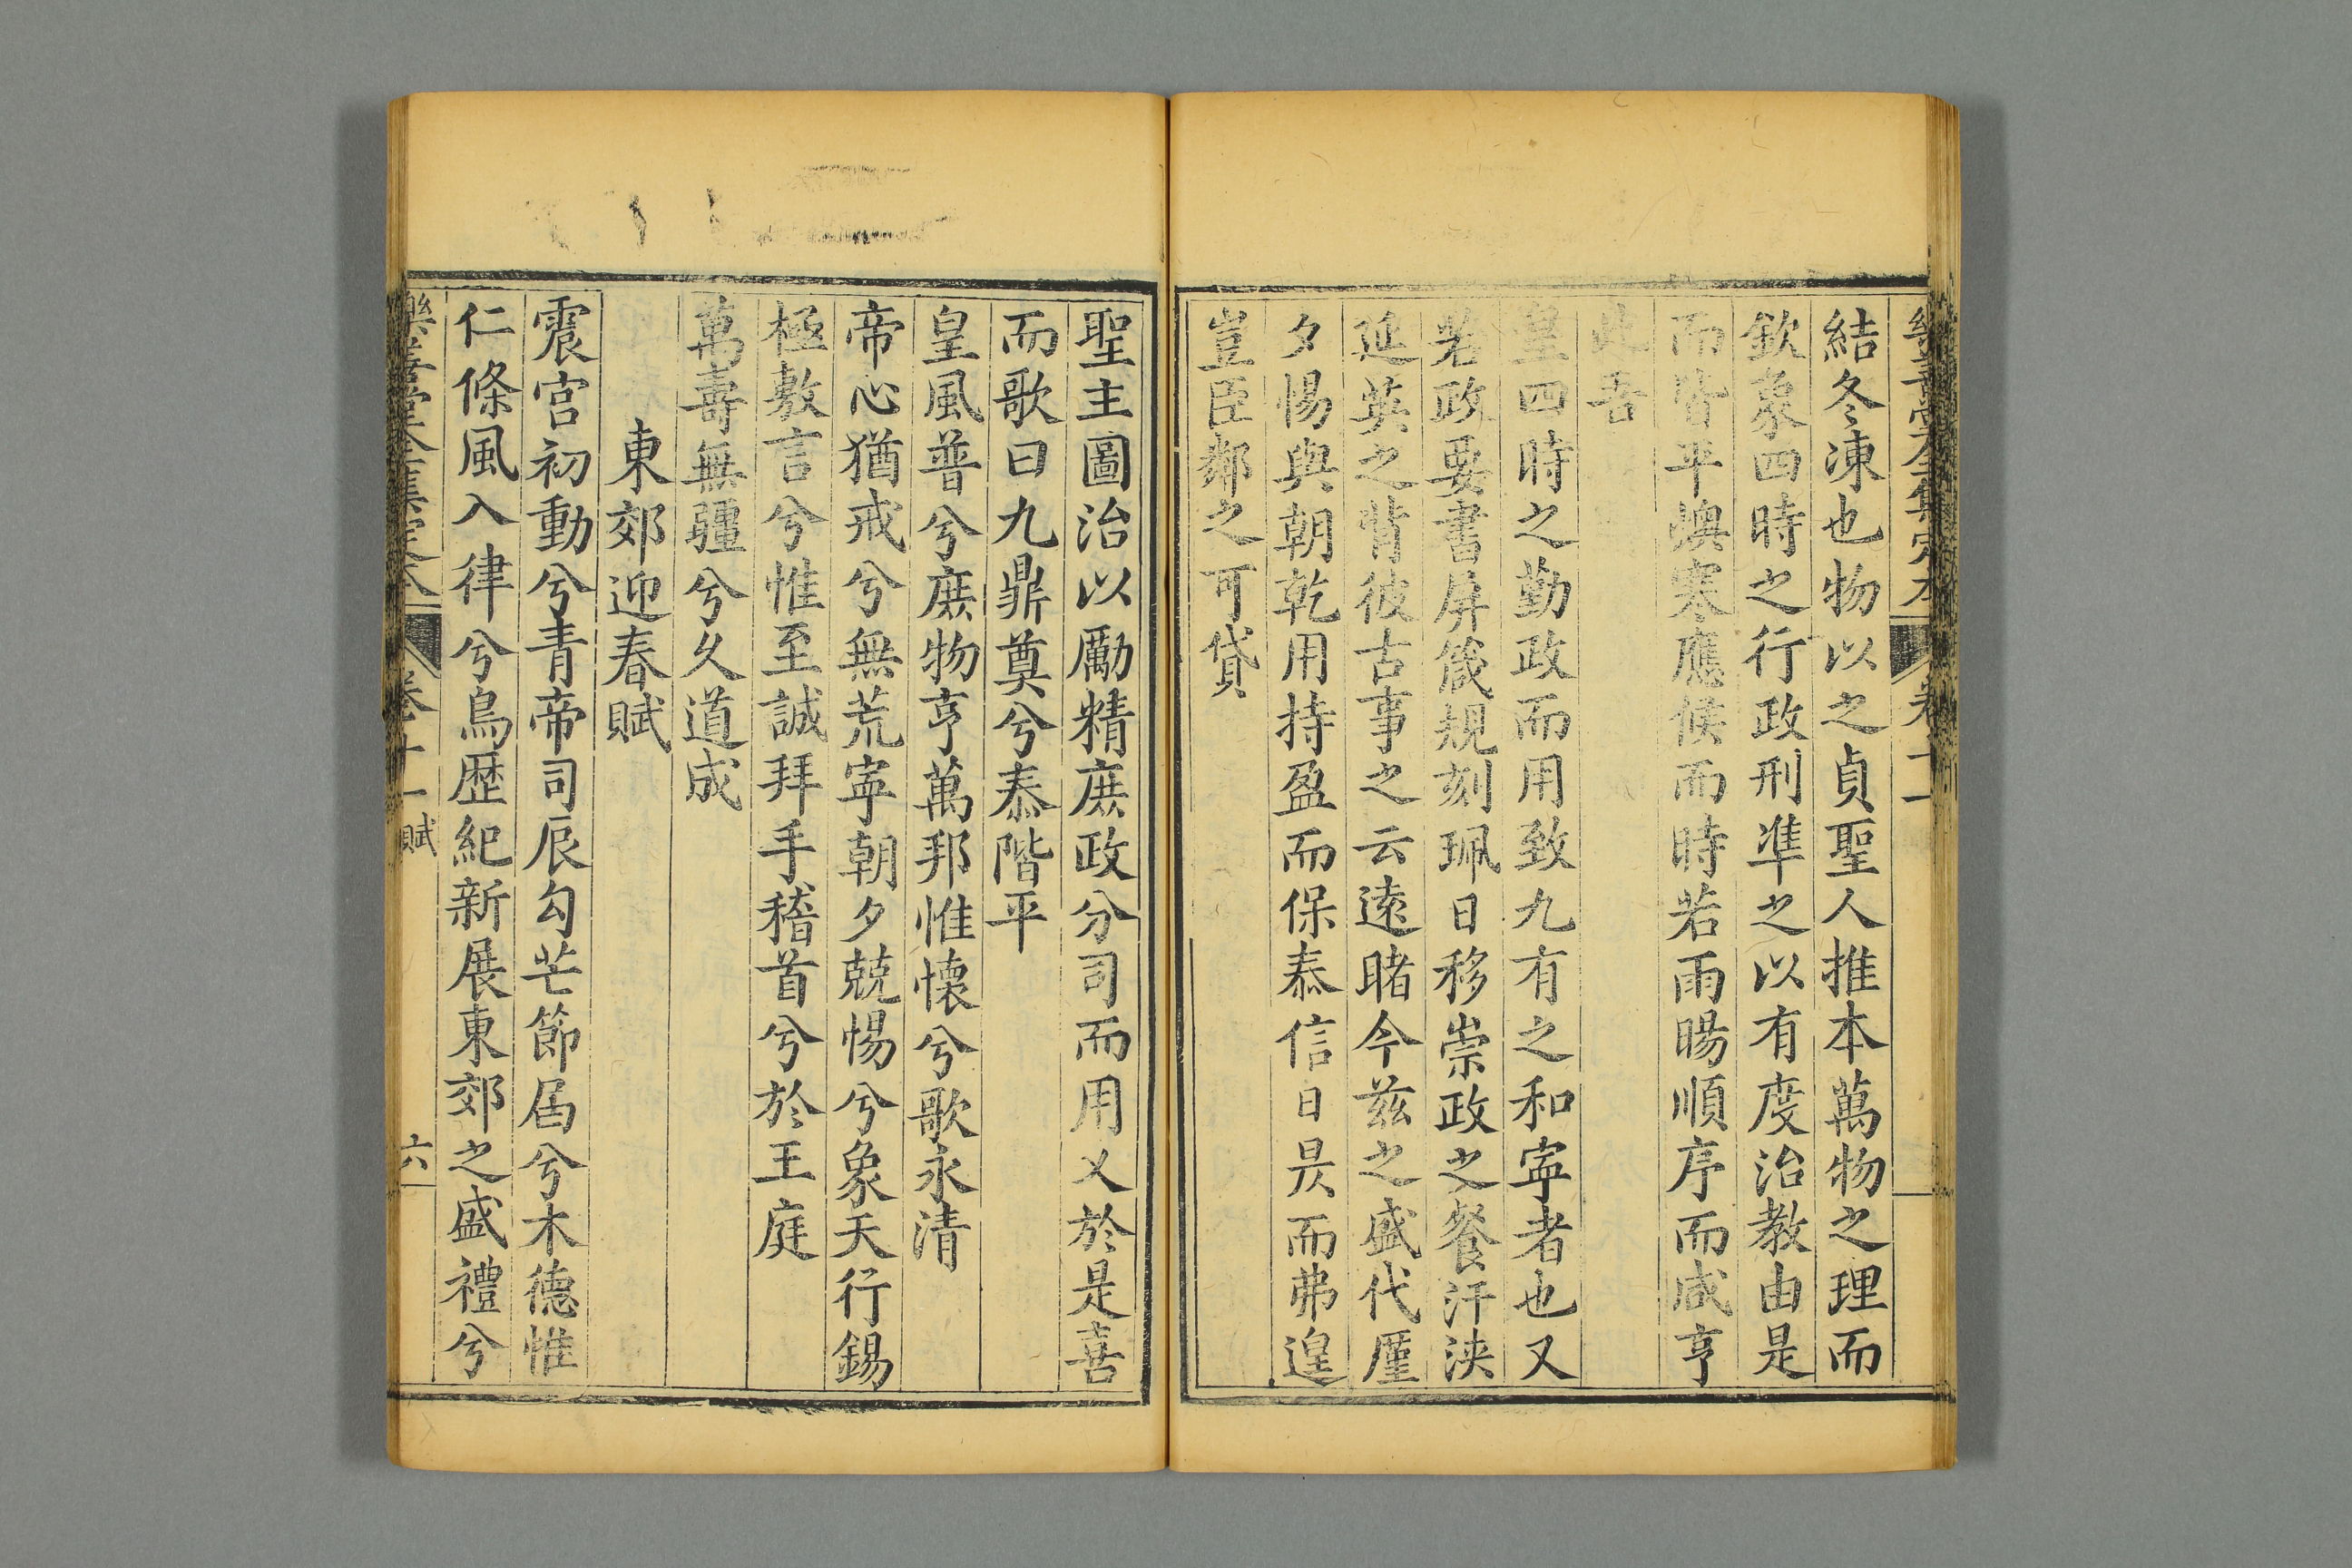 樂善堂全集定本 卷十一
結冬凍也物以之貞聖人推本萬物之理而
欽象四時之行政刑準之以有度治教由是
而皆平燠寒應候而時若雨暘順序而咸亨
此吾
皇四時之勤政而用致九有之和寧者也又
若政要書屏箴規刻珮日移崇政之餐汗浹
延英之背彼古事之云遠睹今兹之盛代廑
夕惕與朝乾用持盈而保泰信日昃而弗遑
豈臣鄰之可貸
聖主圖治以勵精庶政分司而用乂於是喜
而歌曰九鼎奠兮泰階平
皇風普兮庶物亨萬邦惟懷兮歌永清
帝心猶戒兮無荒寧朝夕兢惕兮象天行錫
極敷言兮惟至誠拜手稽首兮於王庭
萬壽無疆兮久道成
東郊迎春賦
震宮初動兮青帝司辰勾芒節屆兮木德惟
仁條風入律兮鳥歷紀新展東郊之盛禮兮
樂善堂全集定本 卷十一 賦 六